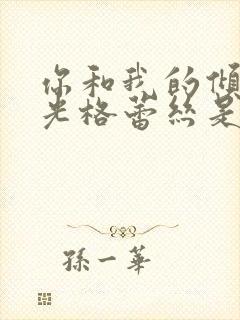 你和我的傾
光格蕾絲是
孫一華